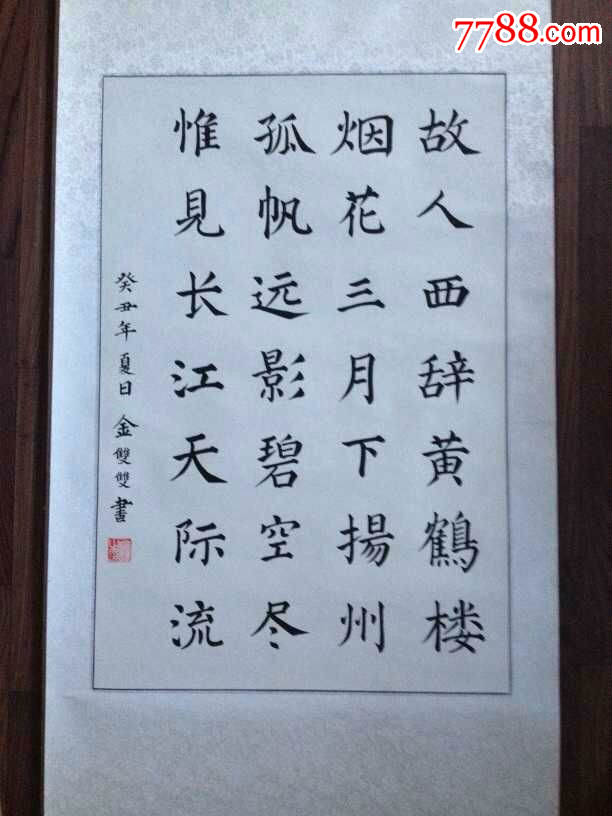 7788.com
故人西辞黄鶴楼
烟花三月下揚州
孤帆远影碧空尽
惟見长江天际流
癸丑年夏日金雙雙書